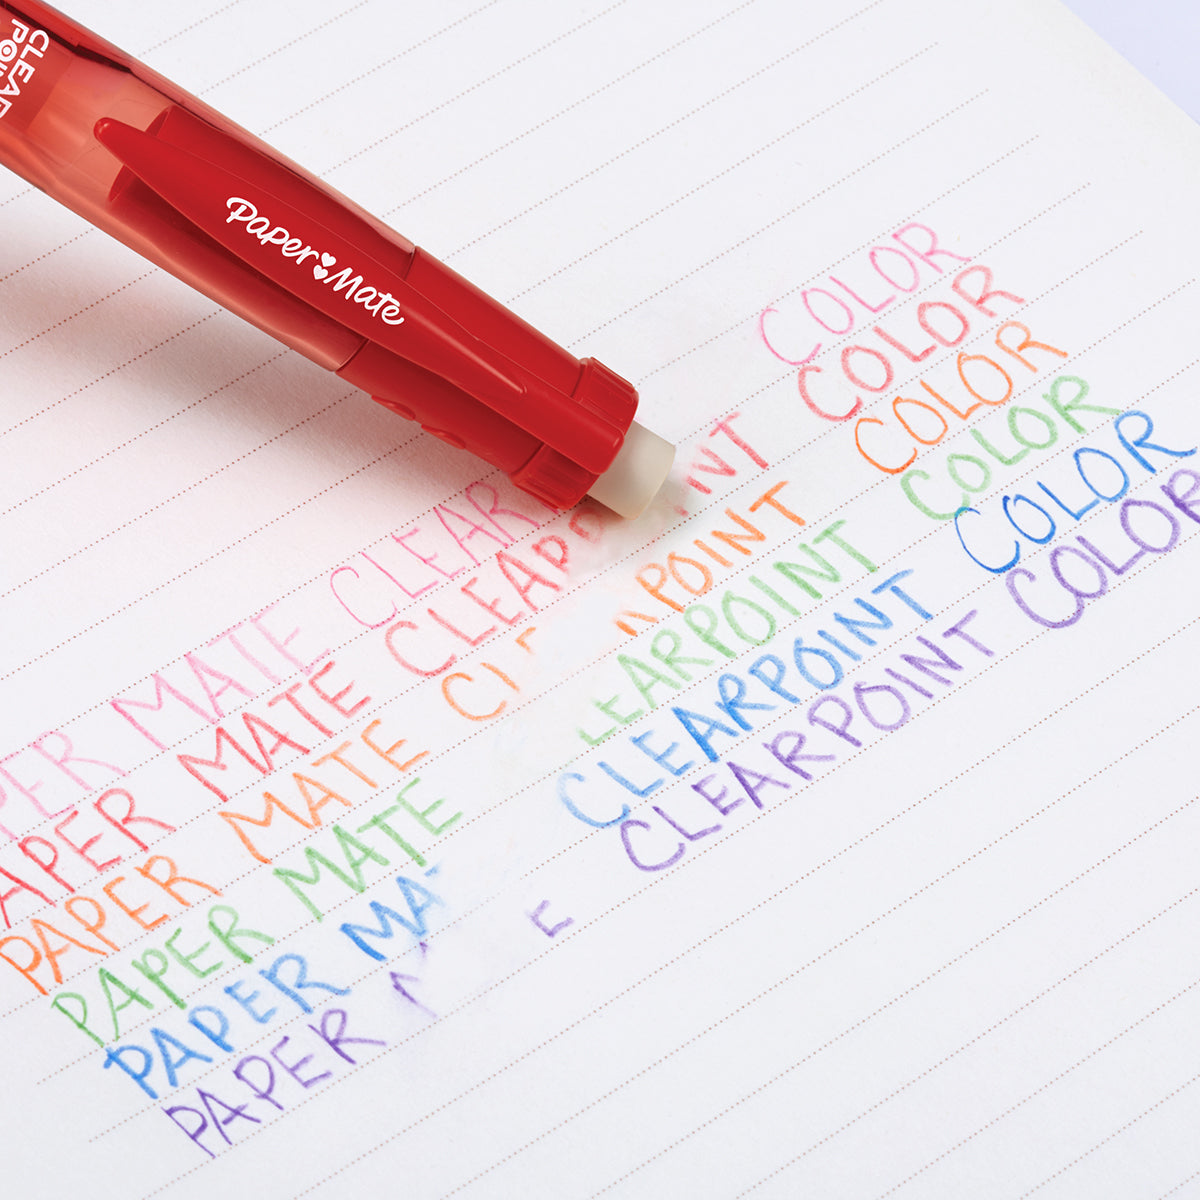 CLEARPOI
Paper Mate
PER MATE CLEAR COLOR
APER MATE CLEAP NT COLOR
PAPER MATE CL POINT COLOR
PAPER MATE LEARPOINT COLOR
PAPER MA CLEARPOINT COLOR
PAPER E CLEARPOINT COLOR